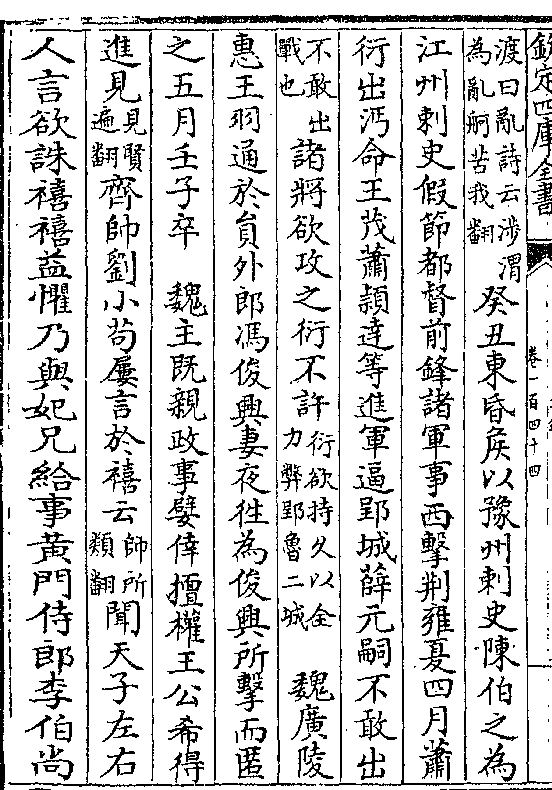 欽定四庫全書
卷一百四十四
渡曰亂詩云涉渭
為亂舸苦我翻
癸丑東昏侯以豫州刺史陳伯之為
江州刺史假節都督前鋒諸軍事西擊荆雍夏四月蕭
衍出沔命王茂蕭頴逹等進軍逼郢城薛元嗣不敢出
不敢出
戰也
諸將欲攻之衍不許
衍欲持久以全
力弊郢魯二城
魏廣陵
惠王羽通於負外郎馮俊興妻夜往為俊興所擊而匿
之五月壬子卒　魏主既親政事嬖倖擅權王公希得
進見
見賢
遍翻
齊帥劉小苟屢言於禧云
帥所
類翻
聞天子左右
人言欲誅禧禧益懼乃與妃兄給事黄門侍郎李伯尚